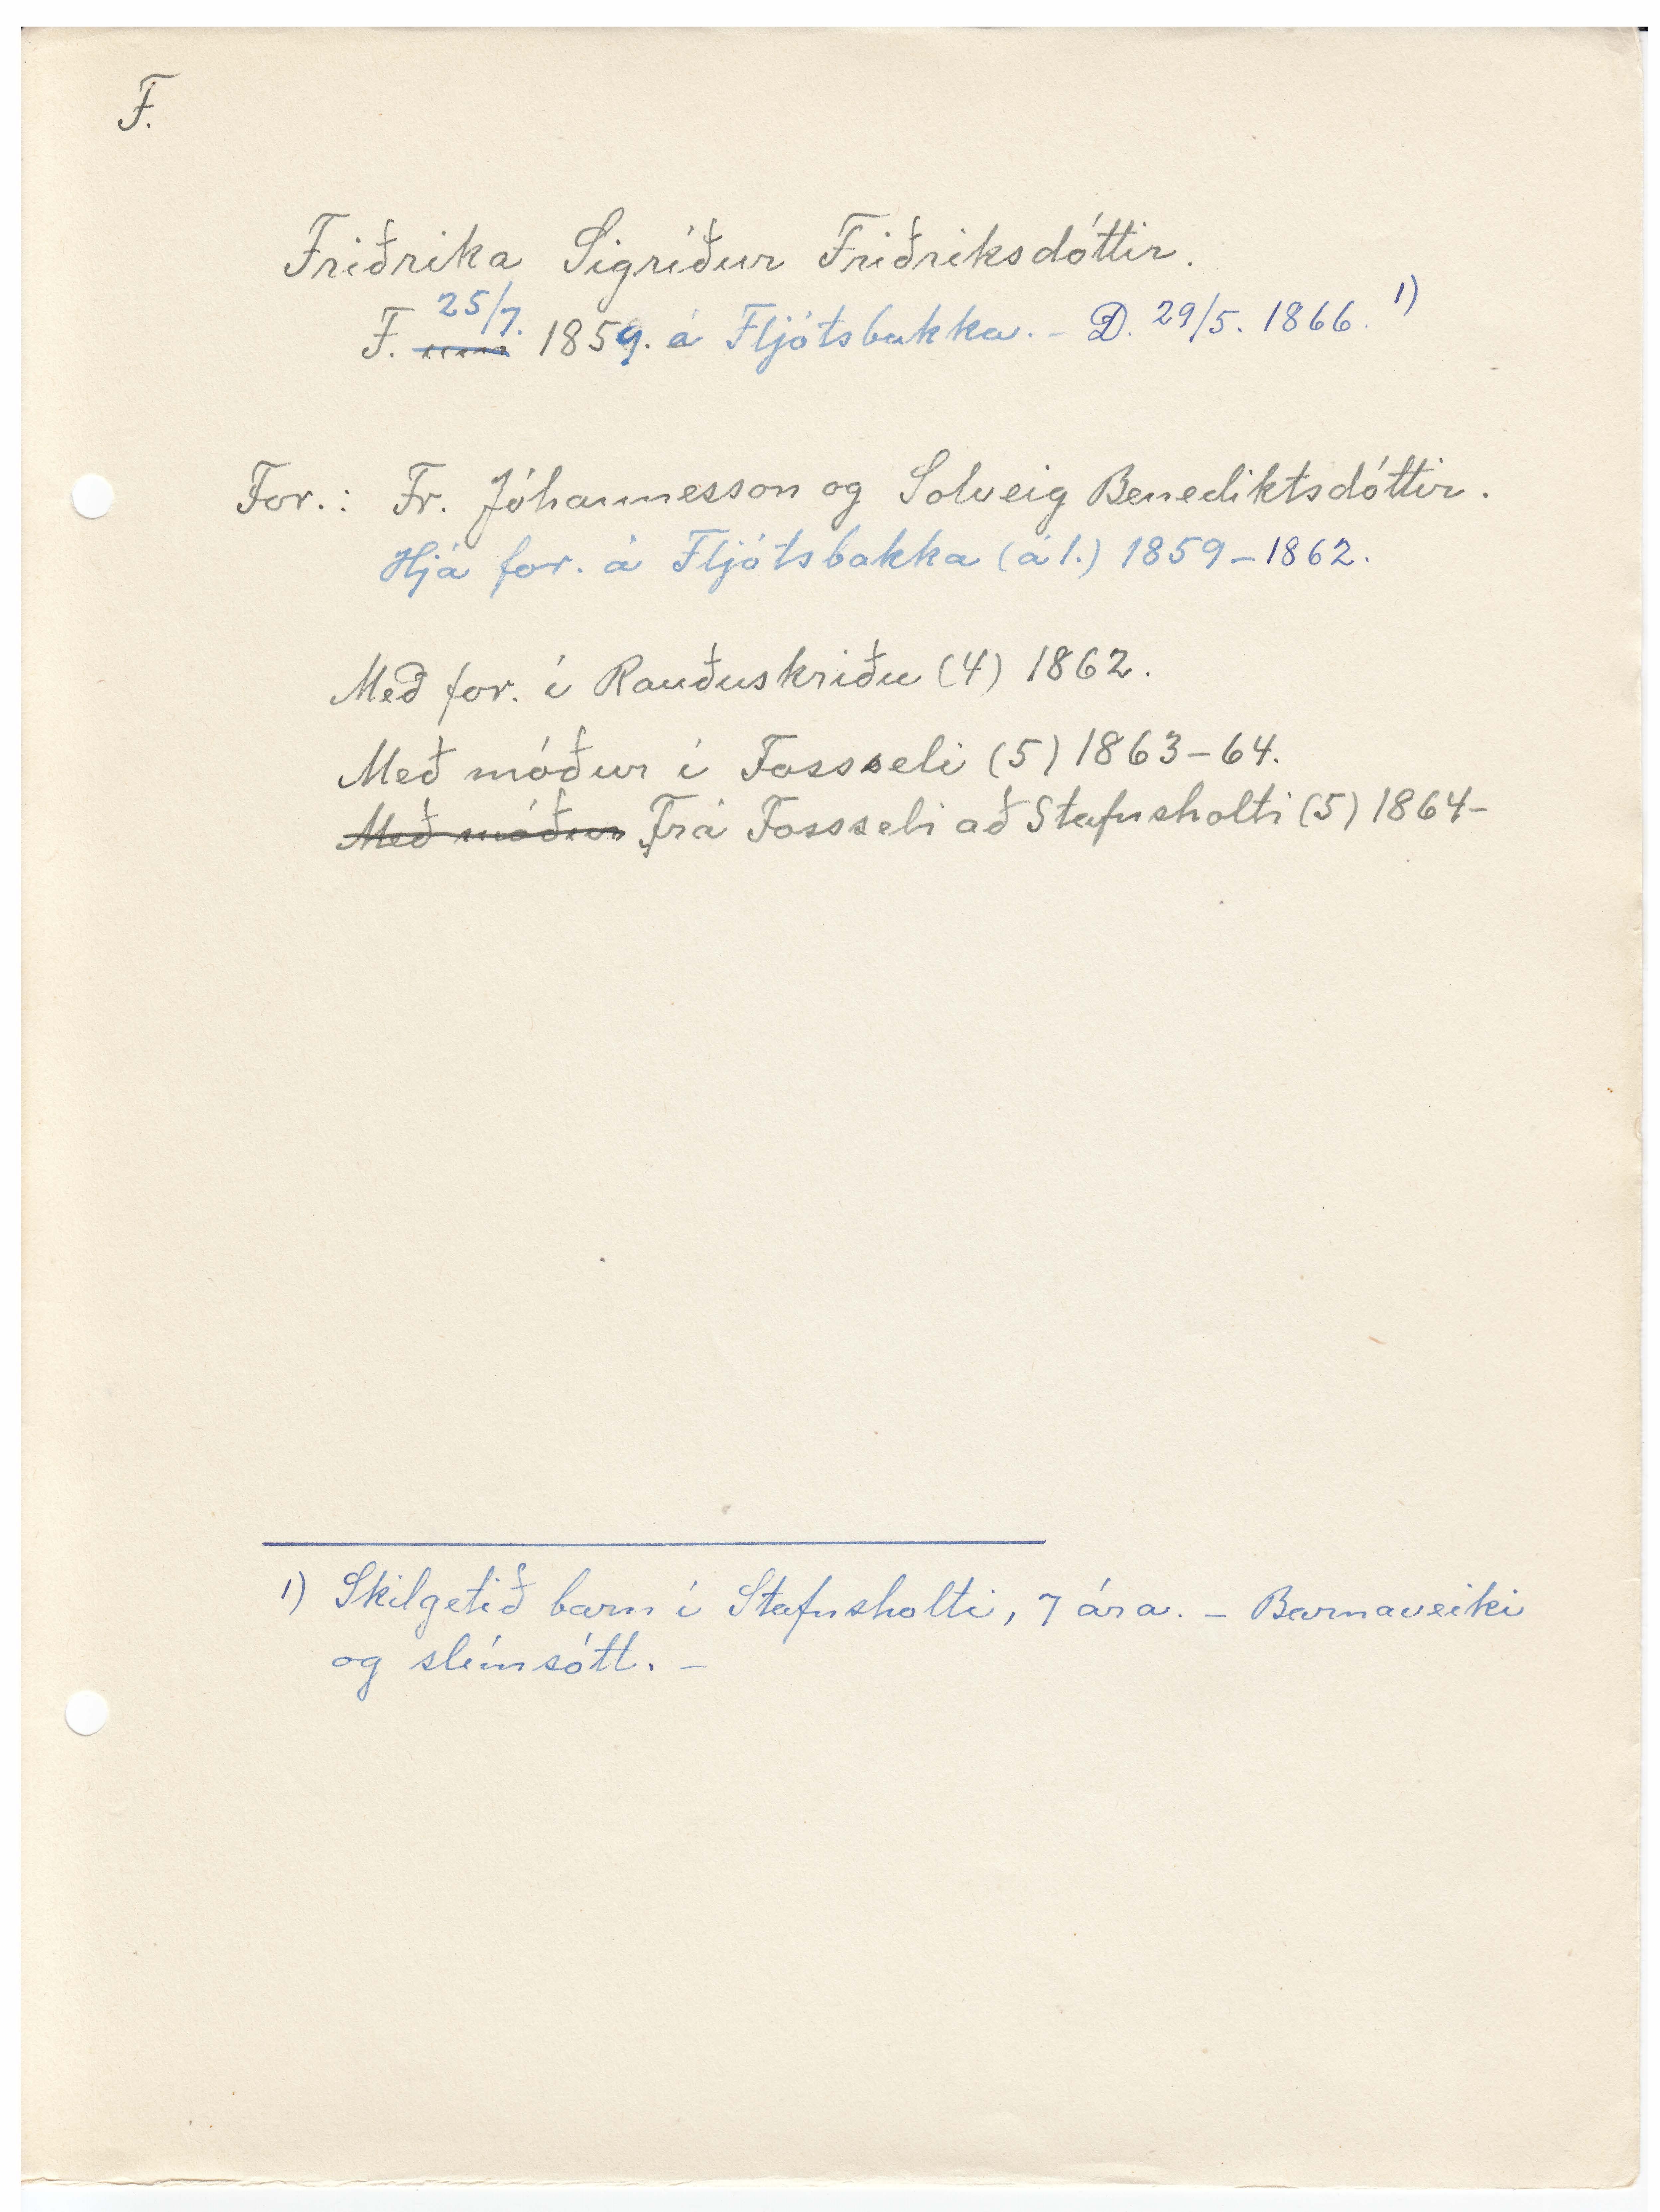 F.
Friðrika Sigríður Friðriksdóttir.
F. 25/7. 1859. á Fljótsbakka. – D. 29/5. 1866. 1)
For.: Fr. Jóhannesson og Solveig Benediktsdóttir.
Hjá for. á Fljótsbakka (á 1.) 1859–1862.
Með for. í Rauðuskriðu (4) 1862.
Með móður í Fossseli (5) 1863–64.
Með móður Frá Fossseli að Stafnsholti (5) 1864–
1) Skilgetið barn í Stafnsholti, 7 ára. – Barnaveiki
og slímsótt. –